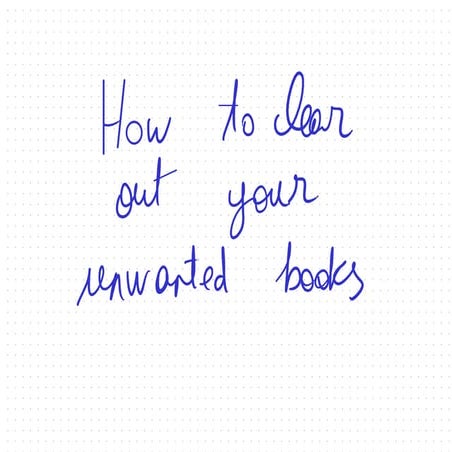 How to clear
out your
unwanted books